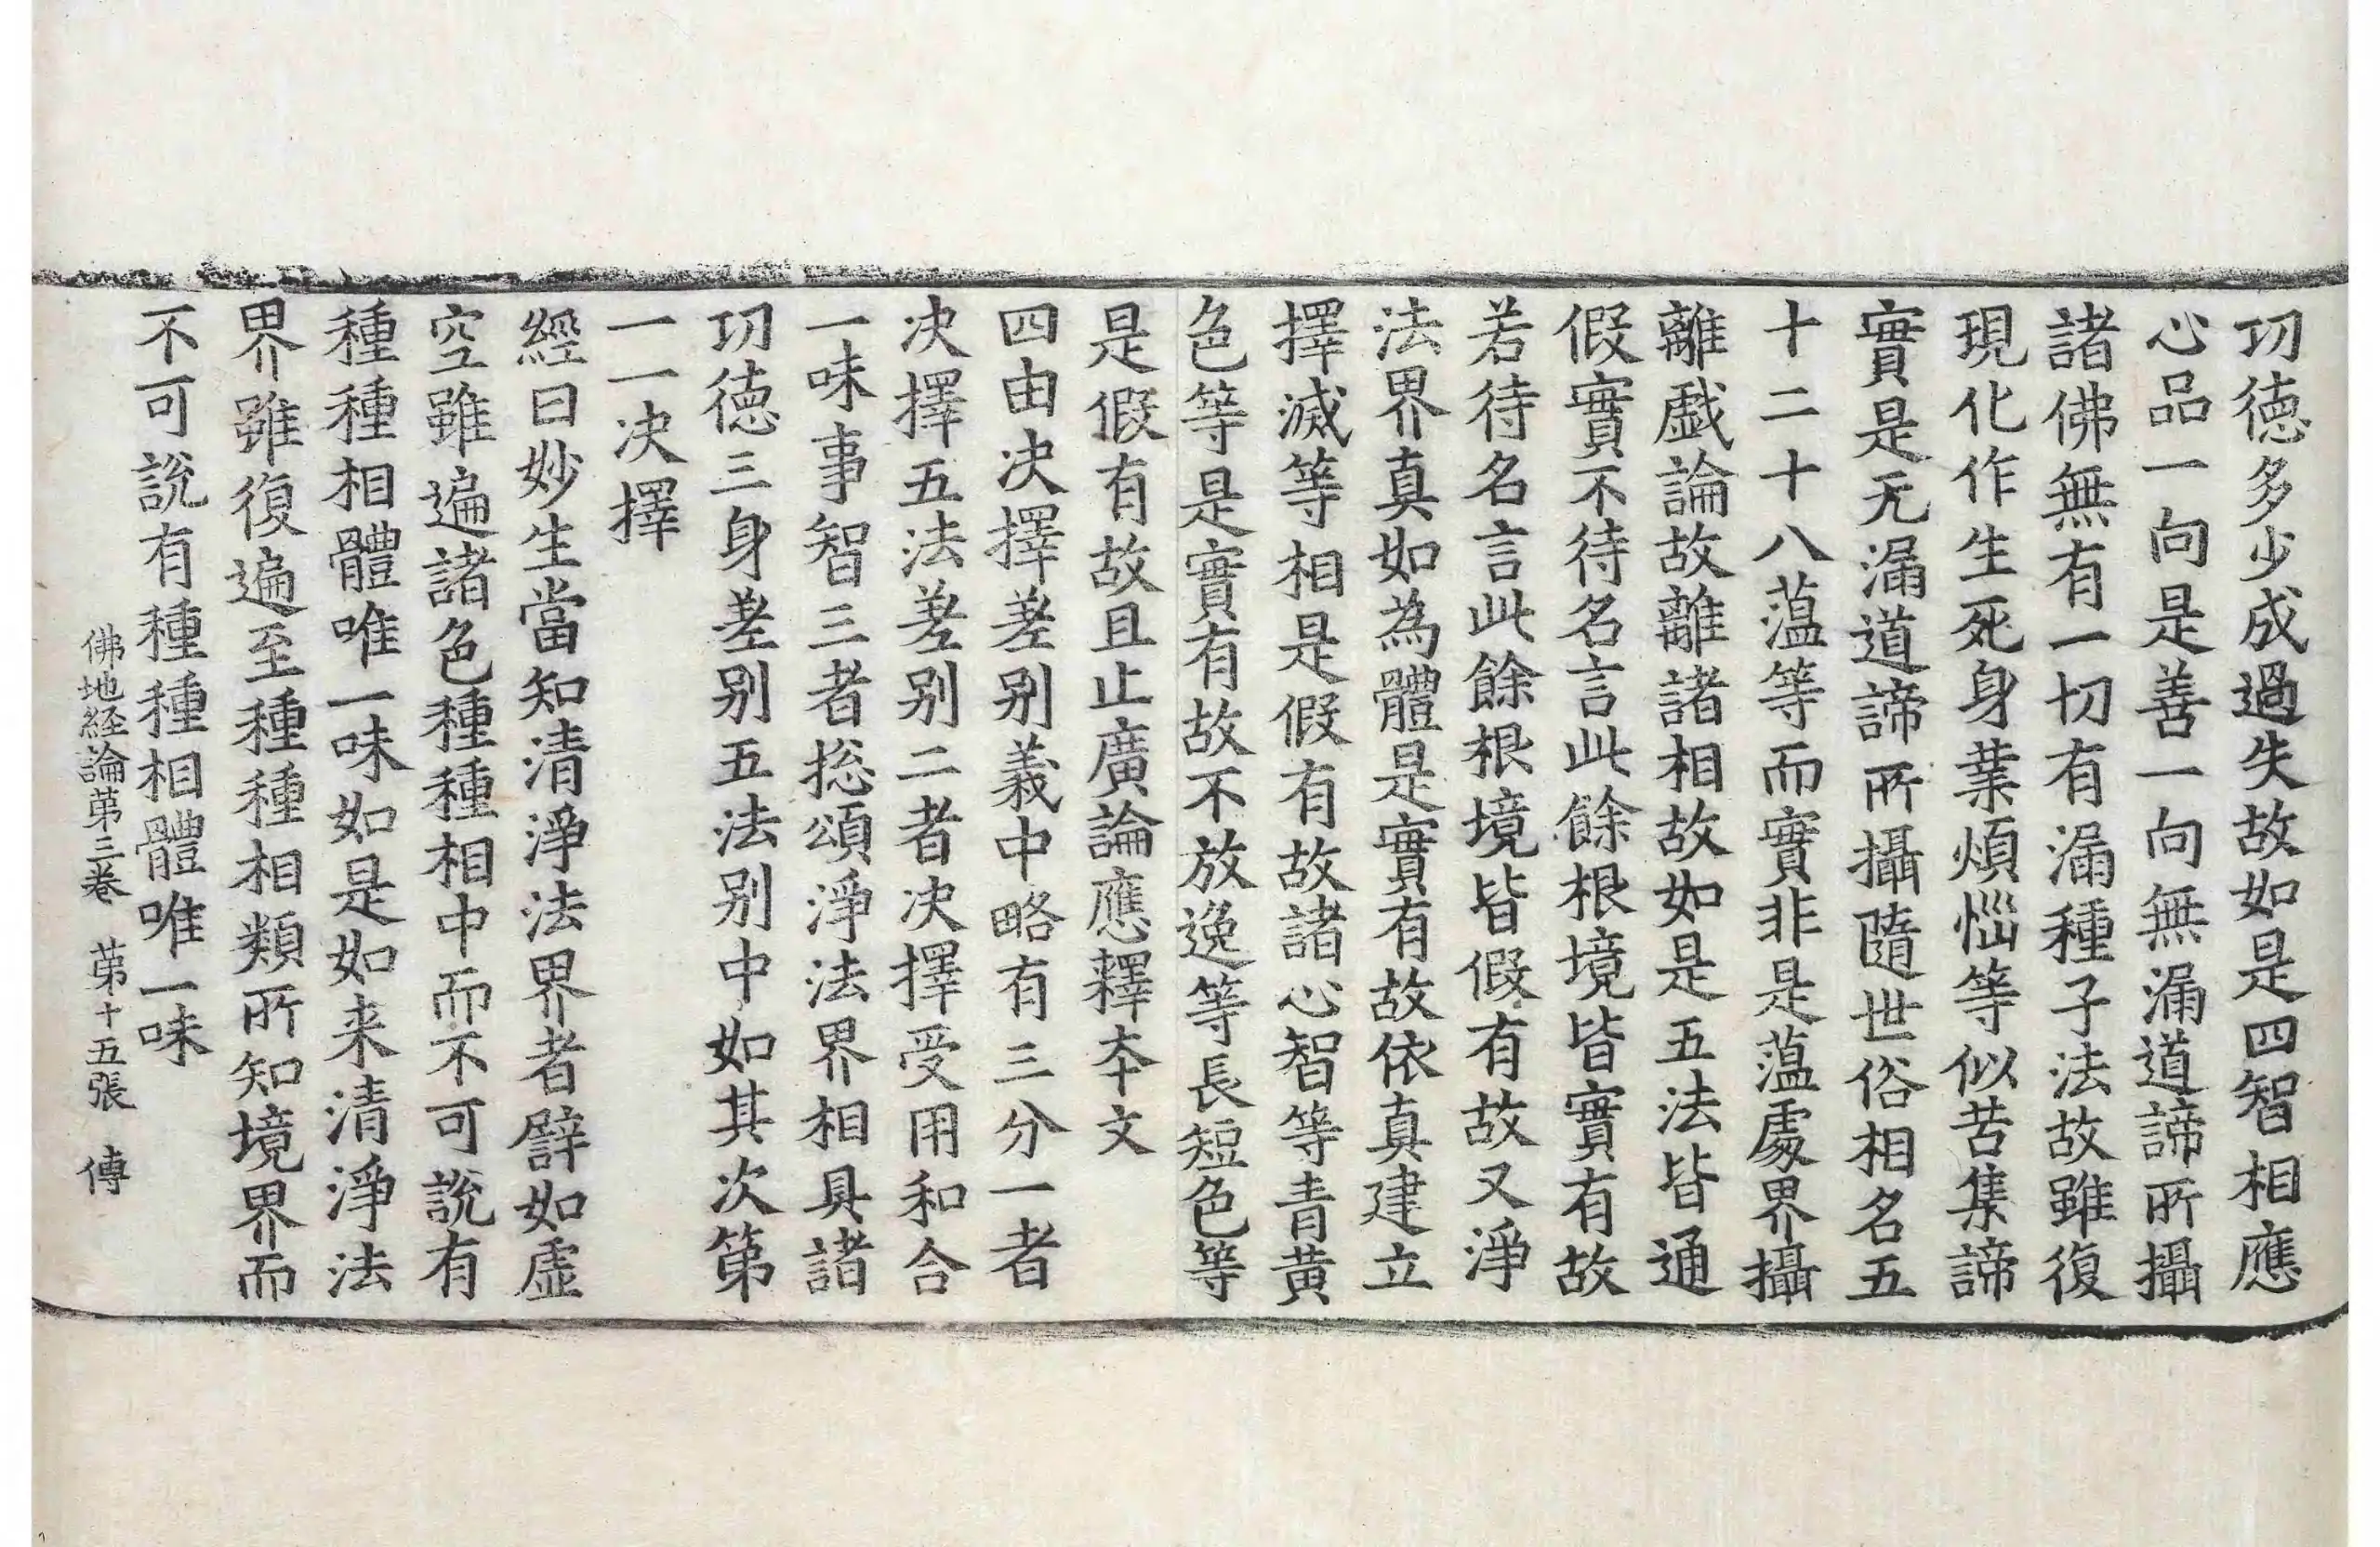 功徳多少成過失故如是四智相應
心品一向是善一向無漏道諦所攝
諸佛無有一切有漏種子法故雖復
現化作生死身業煩惱等似苦集諦
實是无漏道諦所攝隨世俗相名五
十二十八蕰等而實非是蕰處界攝
離戯論故離諸相故如是五法皆通
假實不待名言此餘根境皆實有故
若待名言此餘根境皆假有故又淨
法界真如為體是實有故依真建立
擇滅等相是假有故諸心智等青黄
色等是實有故不放逸等長短色等
是假有故且止廣論應釋本文
四由决擇差别義中略有三分一者
决擇五法差别二者决擇受用和合
一味事智三者揔頌淨法界相具諸
功徳三身差别五法别中如其次第
一一决擇
經曰妙生當知清淨法界者譬如虛
空雖遍諸色種種相中而不可說有
種種相體唯一味如是如来清淨法
界雖復遍至種種相類所知境界而
不可說有種種相體唯一味
佛地経論第三巻 第十五張 傳